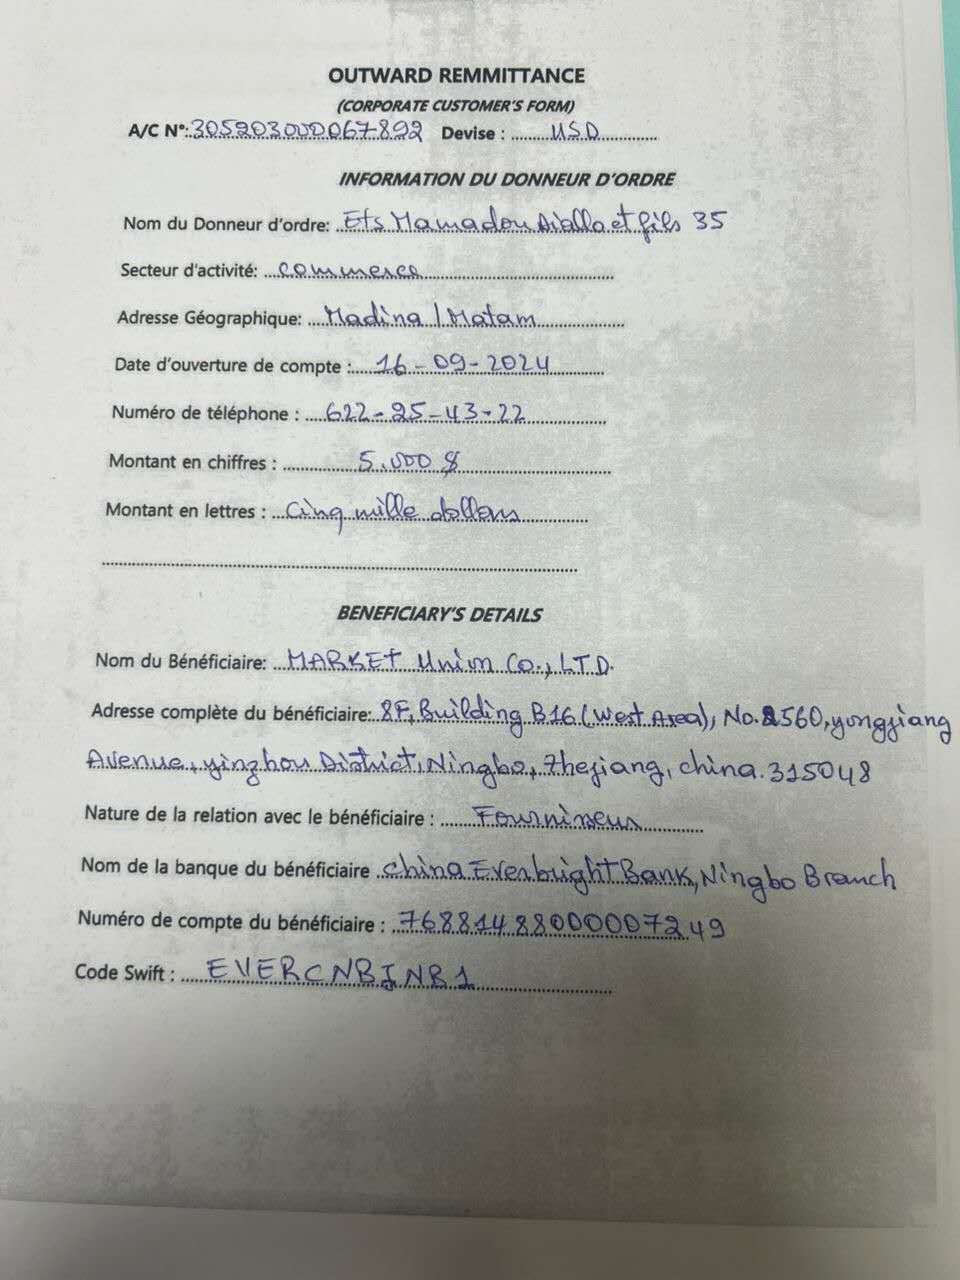 OUTWARD REMMITTANCE
(CORPORATE CUSTOMER'S FORM)
A/C N°: 305203000067892 Devise : USD
INFORMATION DU DONNEUR D'ORDRE
Nom du Donneur d'ordre: Ets Mamadou Diallo et fils 35
Secteur d'activité: commerce
Adresse Géographique: Madina / Matam
Date d'ouverture de compte : 16-09-2024
Numéro de téléphone : 622-25-43-22
Montant en chiffres : 5.000 $
Montant en lettres : Cinq mille dollars
BENEFICIARY'S DETAILS
Nom du Bénéficiaire: MARKET Union Co., LTD.
Adresse complète du bénéficiaire: 8F, Building B16 (West Area), No. 2560, yongjiang
Avenue, yinzhou District, Ningbo, Zhejiang, china. 315048
Nature de la relation avec le bénéficiaire : Fournisseur
Nom de la banque du bénéficiaire china Everbright Bank, Ningbo Branch
Numéro de compte du bénéficiaire : 76881488000007249
Code Swift : EVERCNBJNB1